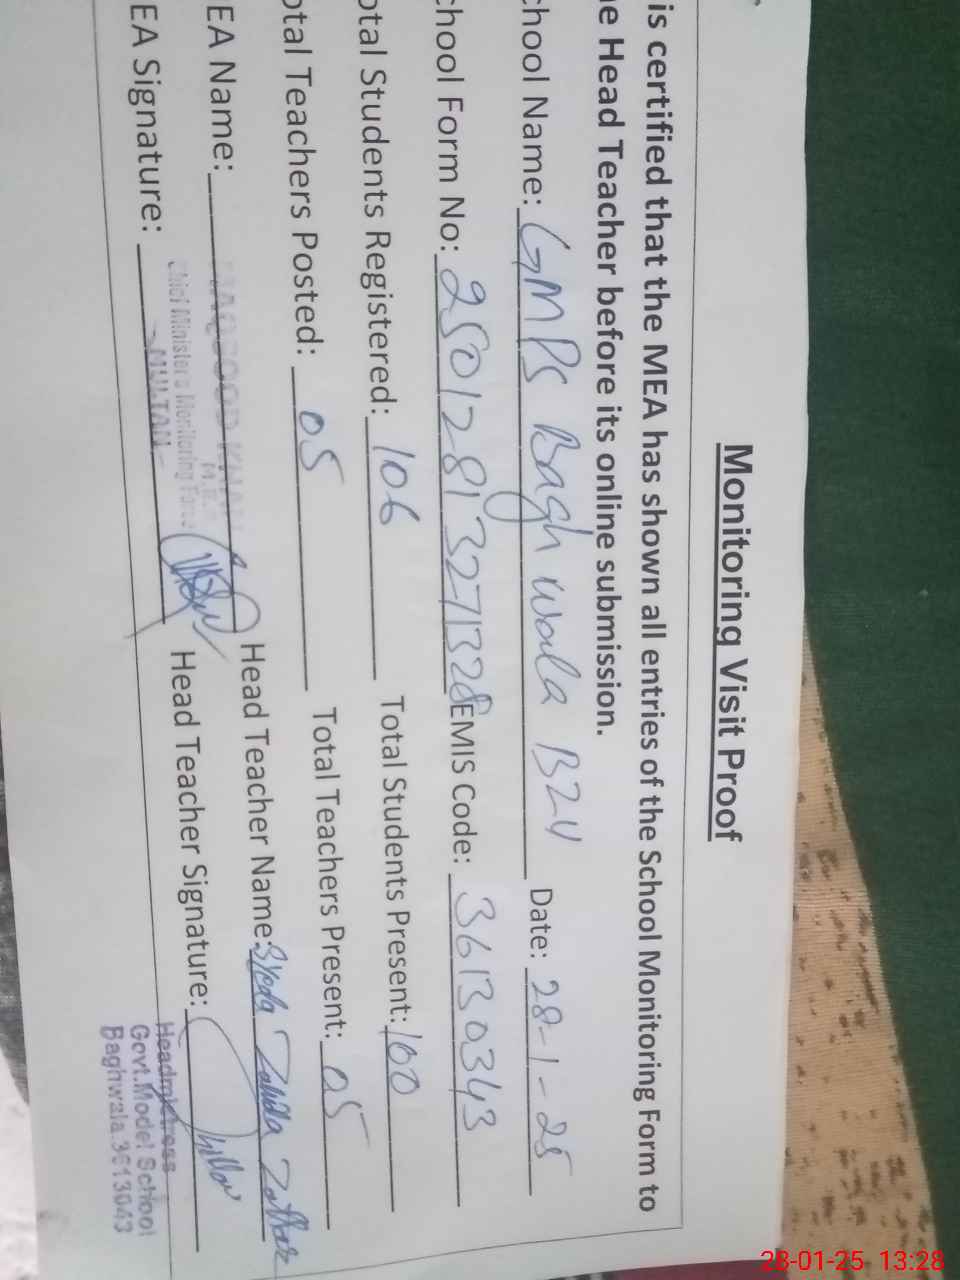 Monitoring Visit Proof
is certified that the MEA has shown all entries of the School Monitoring Form to
e Head Teacher before its online submission.
chool Name: GMPS Bagh wala B24 Date: 28-1-25
chool Form No: 25012813271328 EMIS Code: 36130343
otal Students Registered: 106 Total Students Present: 100
otal Teachers Posted: 05 Total Teachers Present: 05
EA Name: Head Teacher Name: Syeda Zahida Zafar
EA Signature: Head Teacher Signature:
Chief Minister's Monitoring Force
MULTAN
Headmistress
Govt. Model School
Baghwala.3613043
28-01-25 13:28